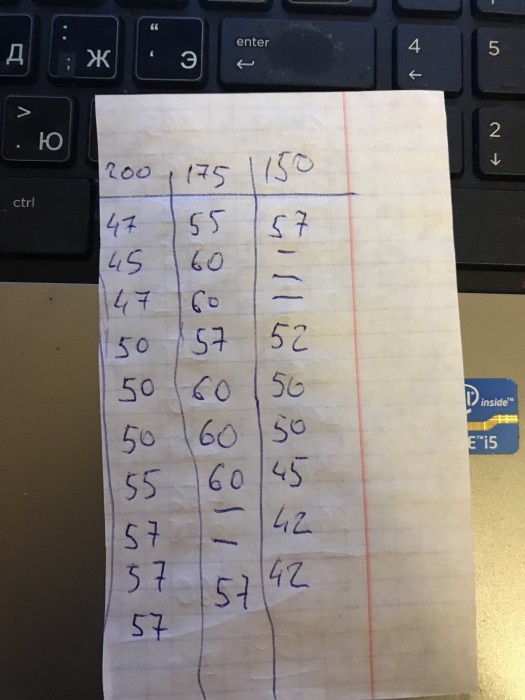 Д
:
; Ж
“
‘ Э
enter
4
←
5
>
. Ю
2
↓
ctrl
200 175 150
47 55 57
45 60 —
47 60 —
—
50 57 52
50 60 50
50 60 50
55 60 45
57 — 42
—
57 57 42
57
inside™
E™i5